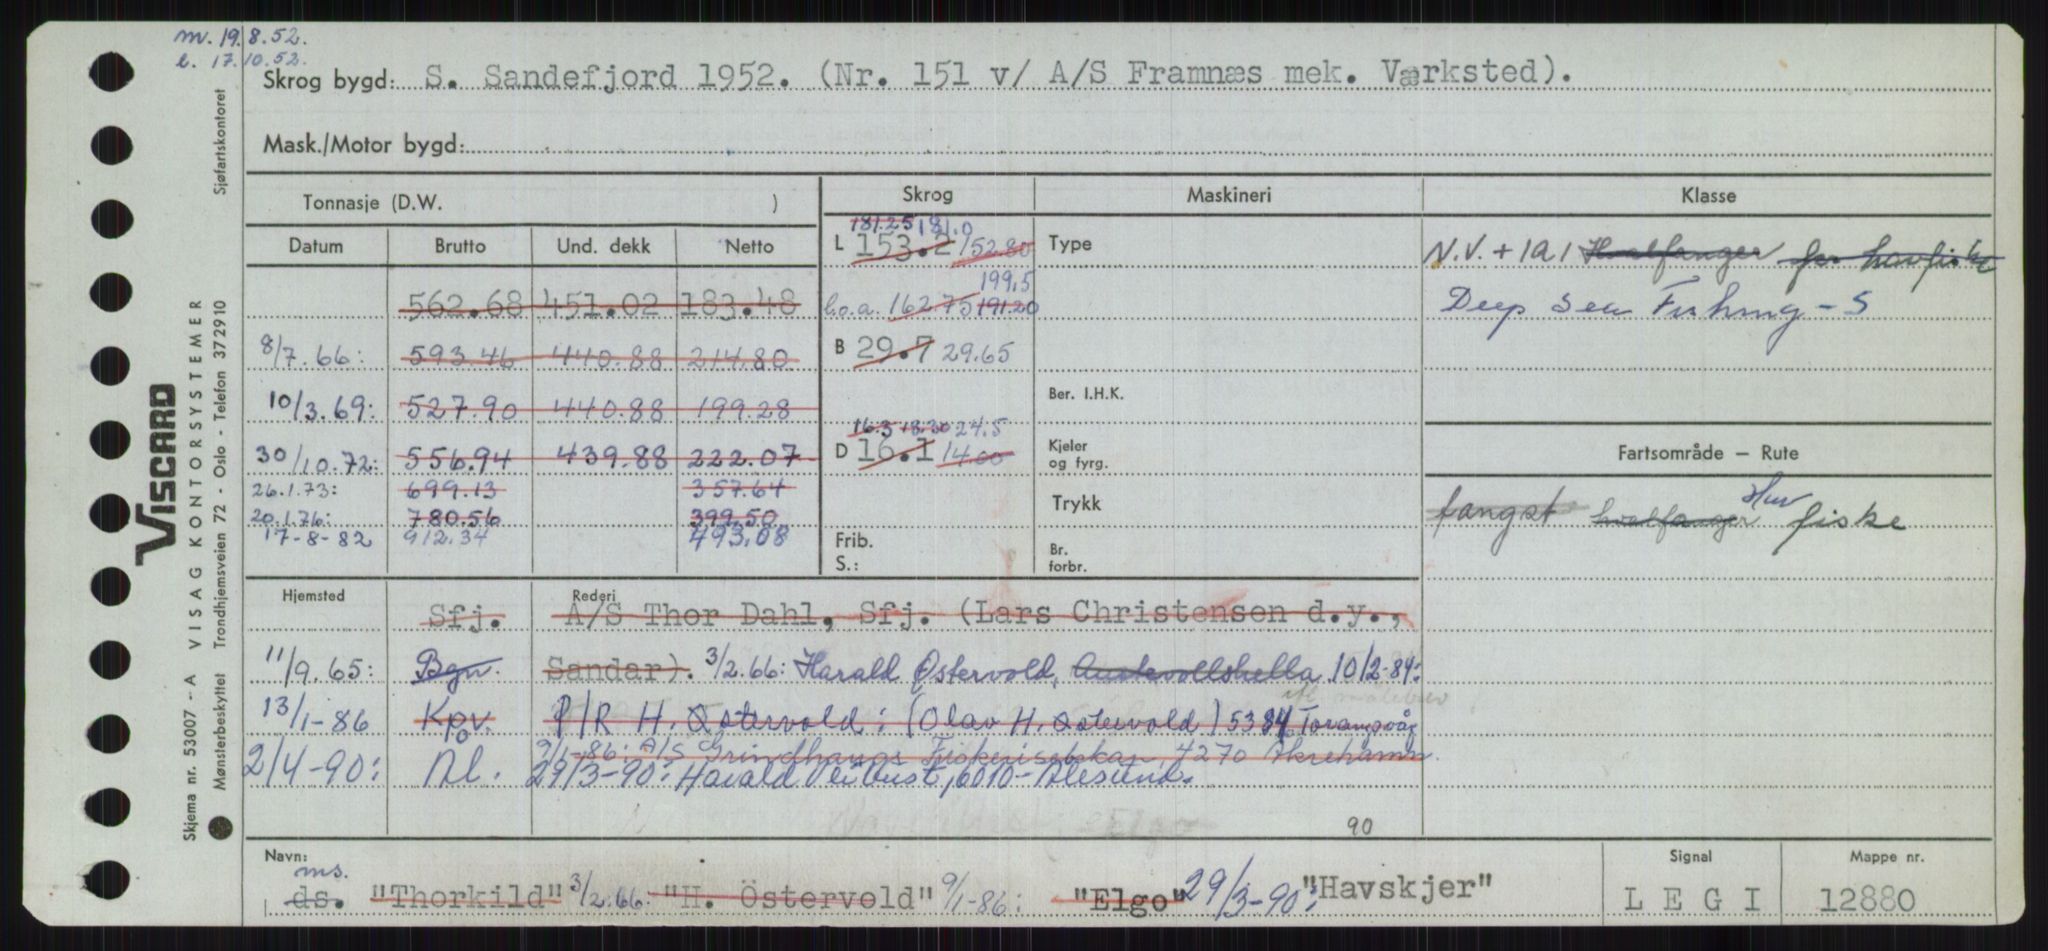 m. 19.8.52.
l. 17.10.52.
Skrog bygd: S. Sandefjord 1952. (Nr. 151 v/ A/S Framnæs mek. Værksted).
Mask./Motor bygd:
Tonnasje (D.W. )
Skrog
Maskineri
Klasse
Datum Brutto Und. dekk Netto
181.25 181.0
L 153.2 152.80
Type
N.V. + 1A1 Hvalfanger for havfiske
199,5
562.68 451.02 183.48
l.o.a. 162.75 191.20
Deep Sea Fishing - S
8/7.66: 593.46 440.88 214.80
B 29.7 29.65
10/3.69: 527.90 440.88 199.28
Ber. I.H.K.
16.3 18.30 24.5
30/10.72: 556.94 439.88 222.07
D 16.1 14.00
Kjeler og fyrg.
Fartsområde — Rute
26.1.73: 699.13 357.64
Trykk
fangst hvalfanger Hav fiske
20.1.76: 780.56 399.50
17-8-82 912.34 493.08
Frib.
S.:
Br. forbr.
Hjemsted
Rederi
Sfj. A/S Thor Dahl, Sfj. (Lars Christensen d.y.,
11/9.65: Bgn. Sandar). 3/2.66: Harald Östervold, Austevollshella 10/2-84:
ifl målebrev
13/1-86 Kpv. P/R H. Østervold: (Olav H. Østervold) 5384 Torangsvåg
9/1-86: A/S Grindhaugs Fiskeriselskap, 4270 Åkrehamn.
2/4-90: Ål. 29/3-90: Harald Leibust, 6010-Ålesund.
Elgo
90
Navn:
ms.
ds. "Thorkild" 3/2.66: "H. Östervold" 9/1-86: "Elgo" 29/3-90: "Havskjer"
Signal
L E G I
Mappe nr.
12880
VISCARD
VISAG KONTORSYSTEMER
Trondhjemsveien 72 - Oslo - Telefon 372910
Sjøfartskontoret
Skjema nr. 53007 - A
Mønsterbeskyttet